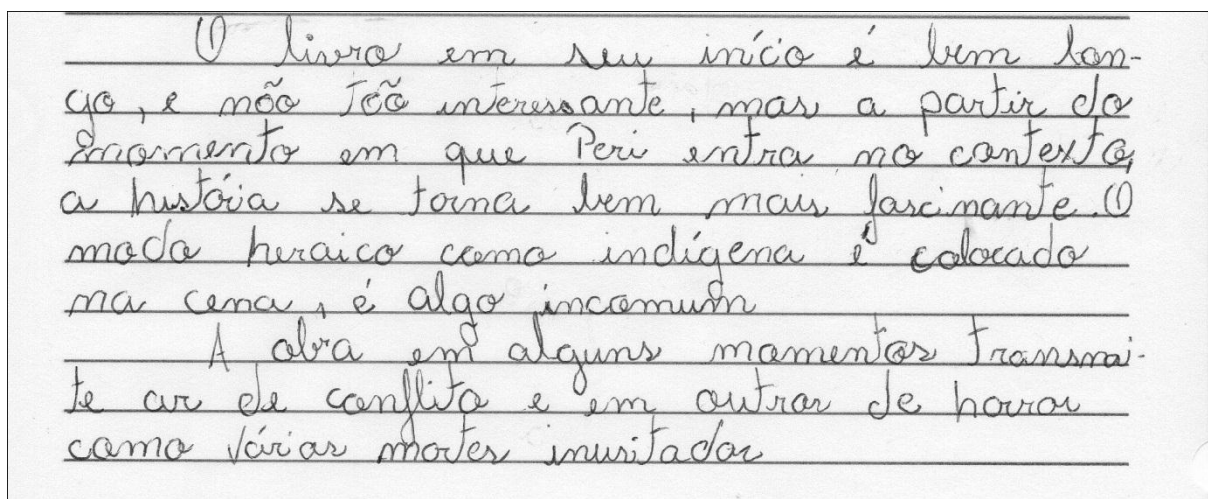 O livro em seu início é bem lon-
go, e não tão interessante, mas a partir do
momento em que Peri entra no contexto,
a história se torna bem mais fascinante. O
modo heroico como indígena é colocado
na cena, é algo incomum
A obra em alguns momentos transmi-
te ar de conflito e em outros de horror
como várias mortes inusitadas